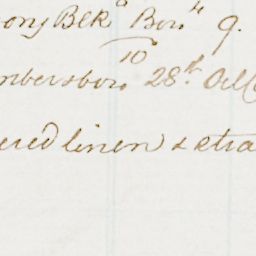 ony Blk^o Bor^n 4 9.
10
mbersboro 28th Oct
ered linen & stra